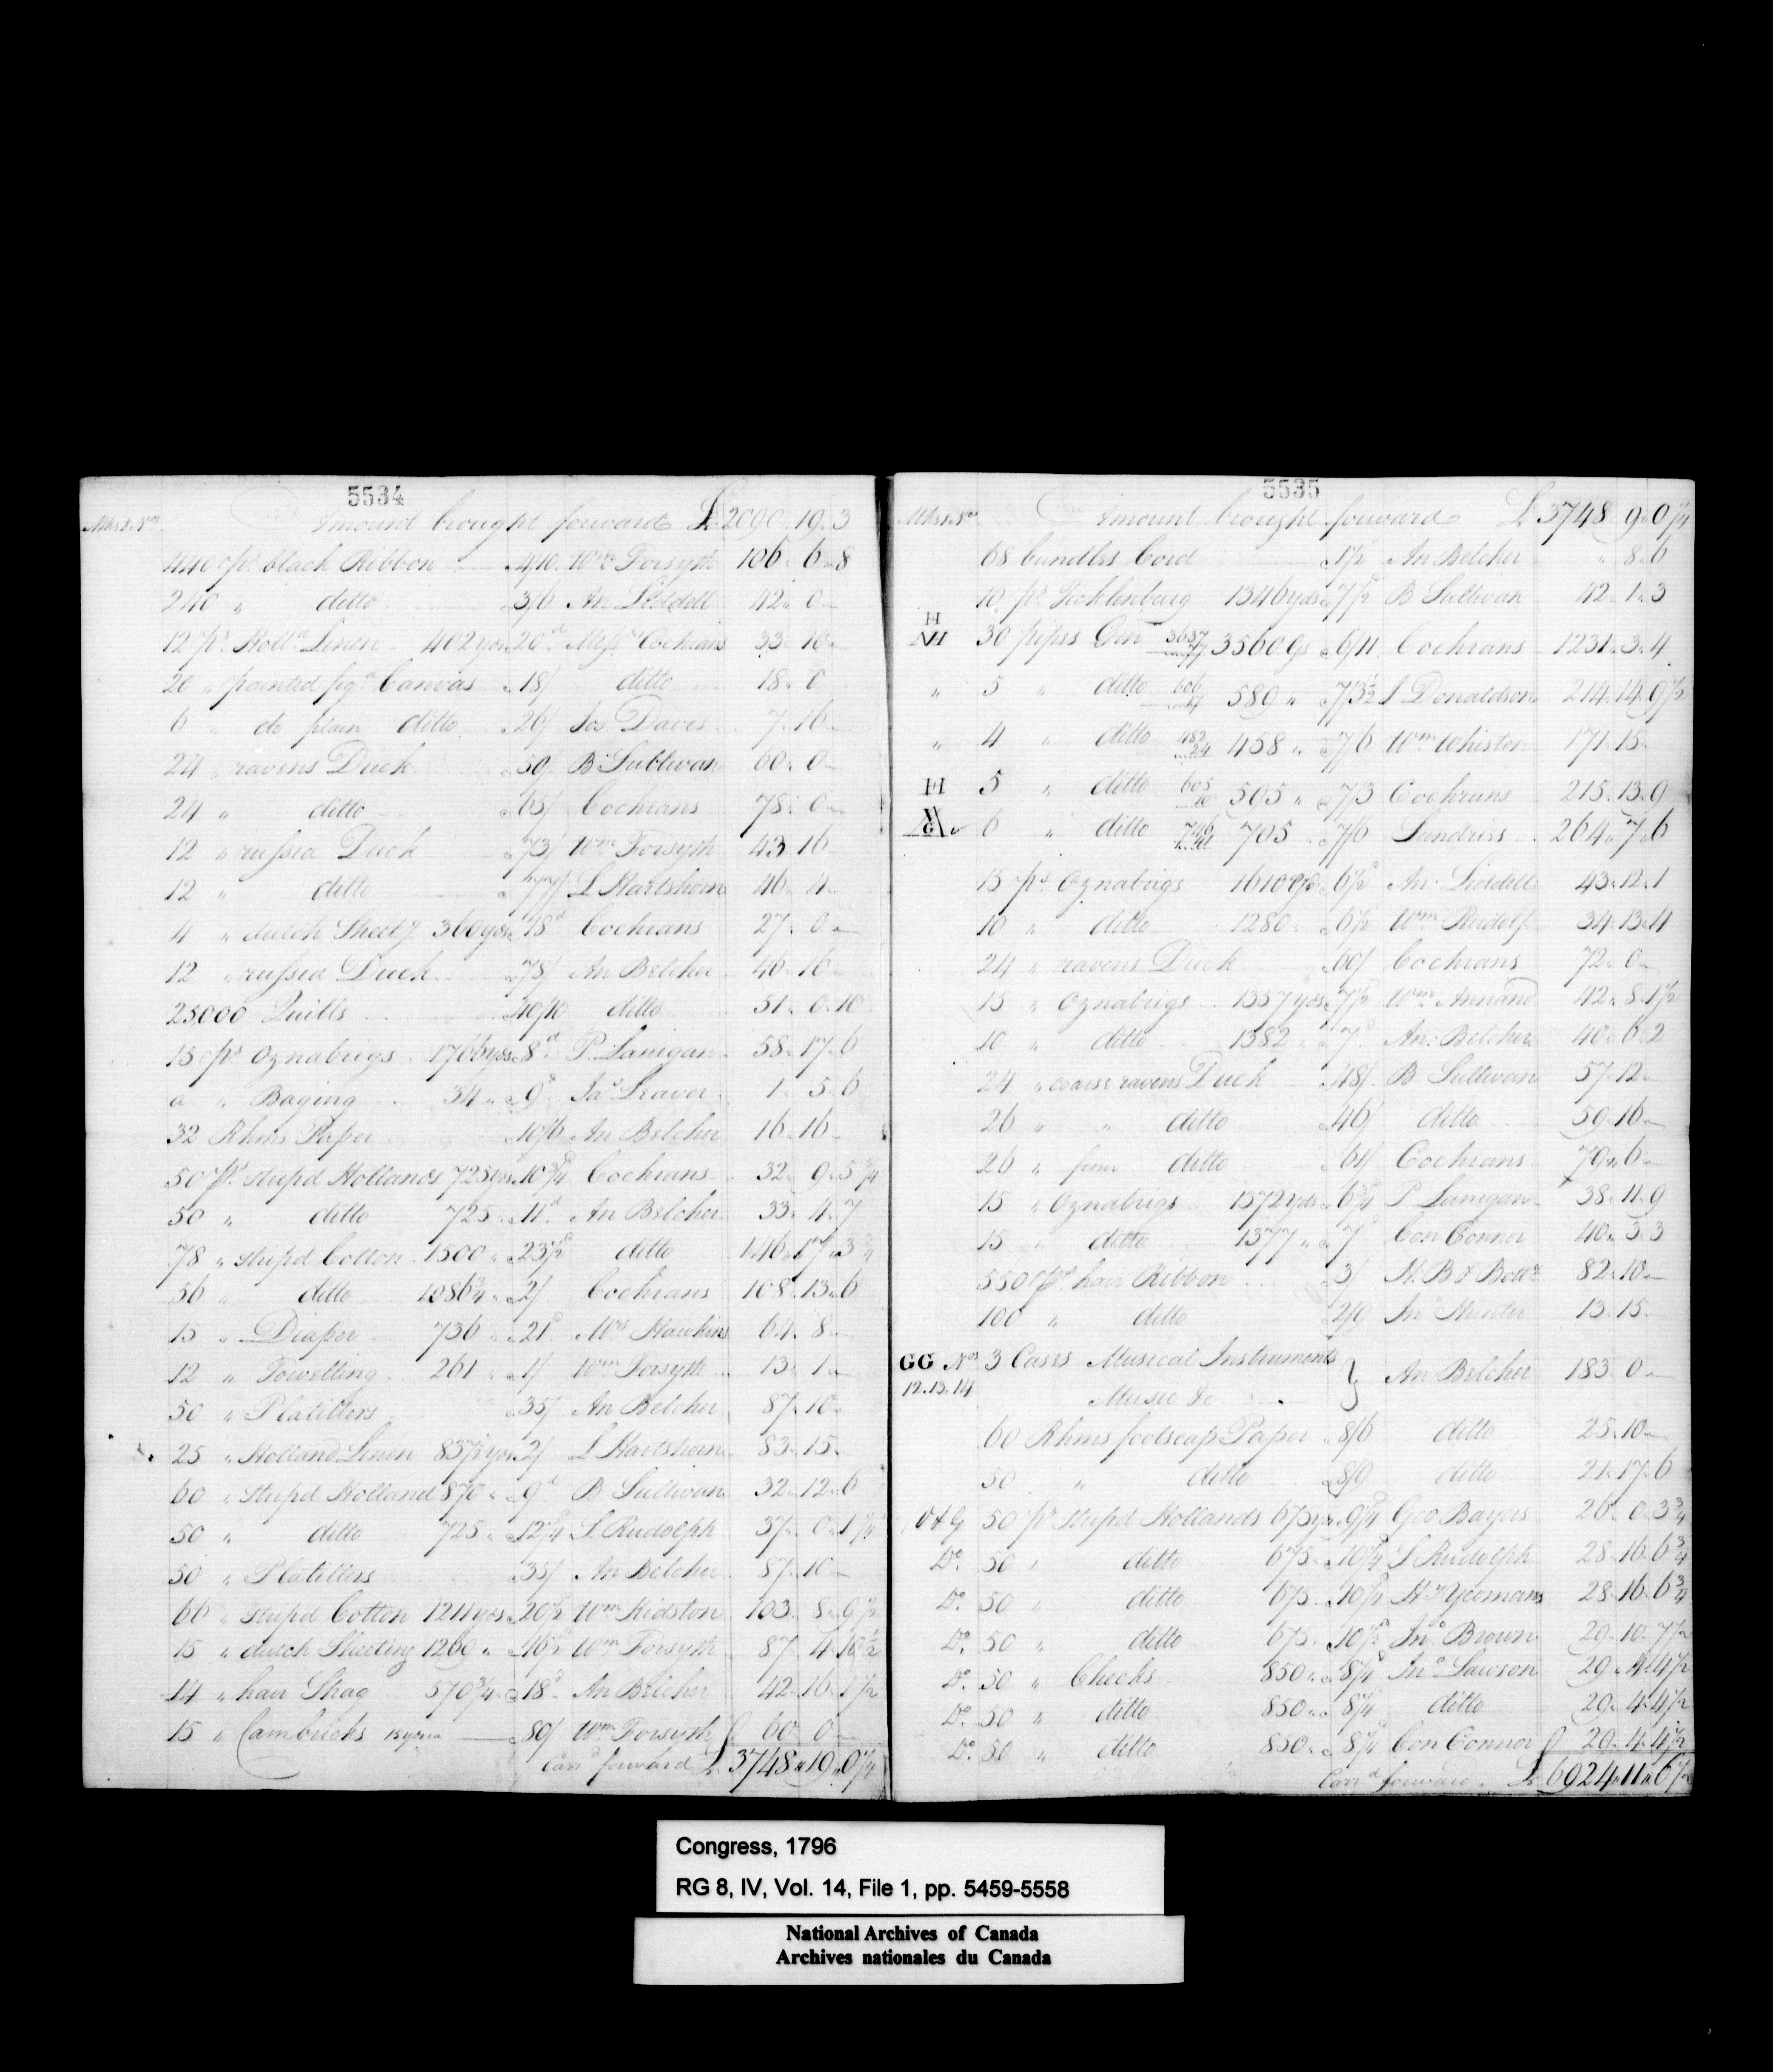 5534
Mks & Nos Amount brought forward £ 2090 " 19 " 3
440 ps black Ribbon 4/10 Wm Forsyth 106 " 6 " 8
240 " ditto 3/6 An Liddell 42 " 0 "
12 ps Holld Linen 402 yds 20d Messrs Cochrans 33 " 10 "
20 " painted Canvas 18/ ditto 18 " 0
6 " do plain ditto 26/ Jos Davis 7 " 16 "
24 " ravens Duck 50/ B Sullivan 60 " 0 "
24 " ditto 65/ Cochrans 78 " 0 "
12 " russia Duck 73/ Wm Forsyth 43 " 16
12 " ditto 77/ L Hartshorn 46 " 4 "
4 " dutch Sheetg 360 yds 18d Cochrans 27 " 0 "
12 " russia Duck 78/ An Belcher 46 " 16 "
25,000 Quills 40/10 ditto 51 " 0 " 10
15 ps Oznabrigs 1766 yds 8d P Lanigan 58 " 17 " 6
a " Baging 34 " 9d Leaver 1 " 5 " 6
32 Rhms Paper 10/6 An Belcher 16 " 16 "
50 ps strip'd Hollands 725 yds 10 3/4 Cochrans 32 " 9 " 5 3/4
50 " ditto 725 " 11d An Belcher 33 " 4 " 7
78 " strip'd Cotton 1500 " 23 1/2 ditto 146 " 17 " 3 3/4
56 " ditto 1086 3/4 " 2/ Cochrans 108 " 13 " 6
15 " Diaper 736 " 21d Mrs Hawkins 64 " 8 "
12 " Towelling 261 " 1/ Wm Forsyth 13 " 1 "
50 " Platillers 35/ An Belcher 87 " 10 "
25 " Holland Linen 837 1/2 yds 2/ L Hartshorn 83 " 15 "
60 " strip'd Holland 870 " 9d B Sullivan 32 " 12 " 6
50 " ditto 725 " 12 1/4 L. Rudolph 37 " 0 " 1 1/4
50 " Platillers 35/ An Belcher 87 " 10 "
66 " strip'd Cotton 1211 yds 20 1/2 Wm Kidston 103 " 8 " 9 1/2
15 " dutch Sheeting 1269 " 16 1/2 Wm Forsyth 87 " 4 " 10 1/2
14 " hair Shag 570 3/4 18d An Belcher 42 " 16 " 1 1/2
15 " Cambricks 80/ Wm Forsyth 60 " 0 "
Carrd forward £ 3748 " 19 " 0 1/4
5535
Mks & Nos Amount brought forward £ 3748 " 9 " 0 1/4
68 bundles Cord 1 1/2 An Belcher " 8 " 6
10 ps Ticklenburg 1346 yds 7 1/2 B Sullivan 42 " 1 " 3
H
30 pipes Gin 3637 77 3560 Gs 6/11 Cochrans 1231 " 3 " 4
" 5 " ditto 606 17 589 " 7/3 1/2 J Donaldson 214 " 14 " 9 1/2
" 4 " ditto 482 24 458 " 7/6 Wm Whiston 171 " 15 "
H 5 " ditto 605 10 595 " 7/3 Cochrans 215 " 13 " 9
6 " ditto 746 41 705 7/6 Sundries 264 " 7 " 6
15 ps Oznabrigs 1610 yds 6 1/2 An: Liddell 43 " 12 " 1
10 " ditto 1280 " 6 1/2 Wm Rudolf 34 " 13 " 4
24 " ravens Duck 60/ Cochrans 72 " 0 "
15 " Oznabrigs 1357 yds 7 1/2 Wm Annand 42 " 8 " 1 1/2
10 " ditto 1382 " 7d An: Belcher 40 " 6 " 2
24 " coarse ravens Duck 48/ B Sullivan 57 " 12 "
26 " " ditto 46/ ditto 59 " 16 "
26 " finer ditto 61/ Cochrans 79 " 6 "
15 " Oznabrigs 1372 yds 6 3/4 P Lanigan 38 " 11 " 9
15 " ditto 1377 " 7d Con Connor 40 " 3 " 3
550 ps hair Ribbon 3/ 82 " 10 "
100 " ditto 2/9 Jno Hunter 13 " 15 "
GG Nos 3 Cases Musical Instruments } An Belcher 183 " 0 "
12.13.14 Music &c
60 Rhms foolscap Paper 8/6 ditto 25 " 10 "
50 " ditto 8/9 ditto 21 " 17 " 6
V & G 50 ps strip'd Hollands 675 yds 9 1/4 Geo Bayers 26 " 0 " 3 3/4
Do 50 " ditto 675 " 10 1/4 L Rudolph 28 " 16 " 6 3/4
Do 50 " ditto 675 " 10 1/4 Hy Yeomans 28 " 16 " 6 3/4
Do 50 " ditto 675 " 10 1/2 Jno Brown 29 " 10 " 7 1/2
Do 50 " Checks 850 " 8 1/4 Jno Lawson 29 " 4 " 4 1/2
Do 50 " ditto 850 " 8 1/4 ditto 29 " 4 " 4 1/2
Do 50 " ditto 850 " 8 1/4 Con Connor 29 " 4 " 4 1/2
Carrd forward £ 6924 " 11 " 6 1/2
Congress, 1796
RG 8, IV, Vol. 14, File 1, pp. 5459-5558
National Archives of Canada
Archives nationales du Canada